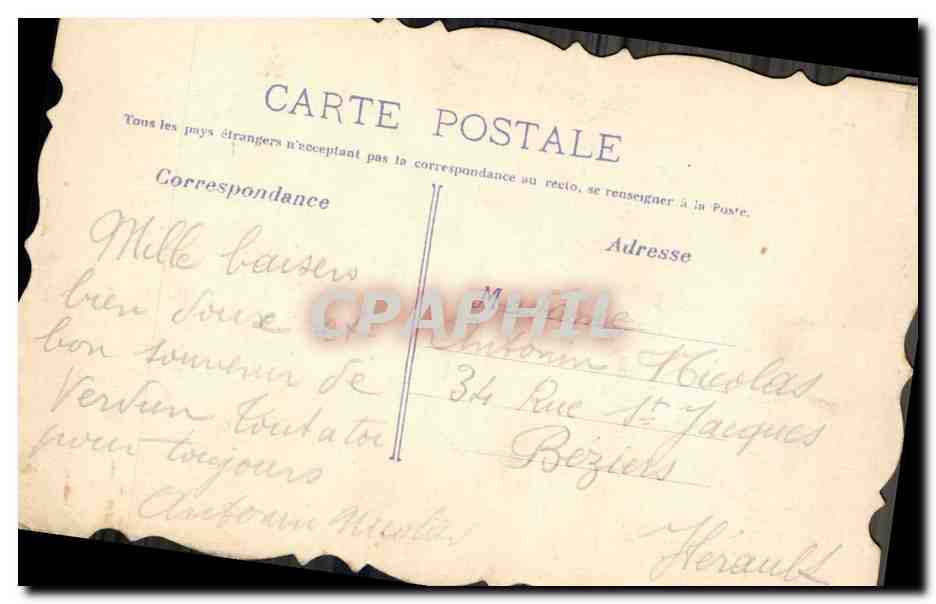 CARTE POSTALE
Tous les pays étrangers n'acceptent pas la correspondance au recto, se renseigner à la Poste.
Correspondance
Mille baisers
bien doux et
bon souvenir de
Verdun tout a toi
pour toujours
Antonin Nicolas
Adresse
Madame
Antonin Nicolas
34 Rue St Jacques
Béziers
Hérault
CPAPHIL